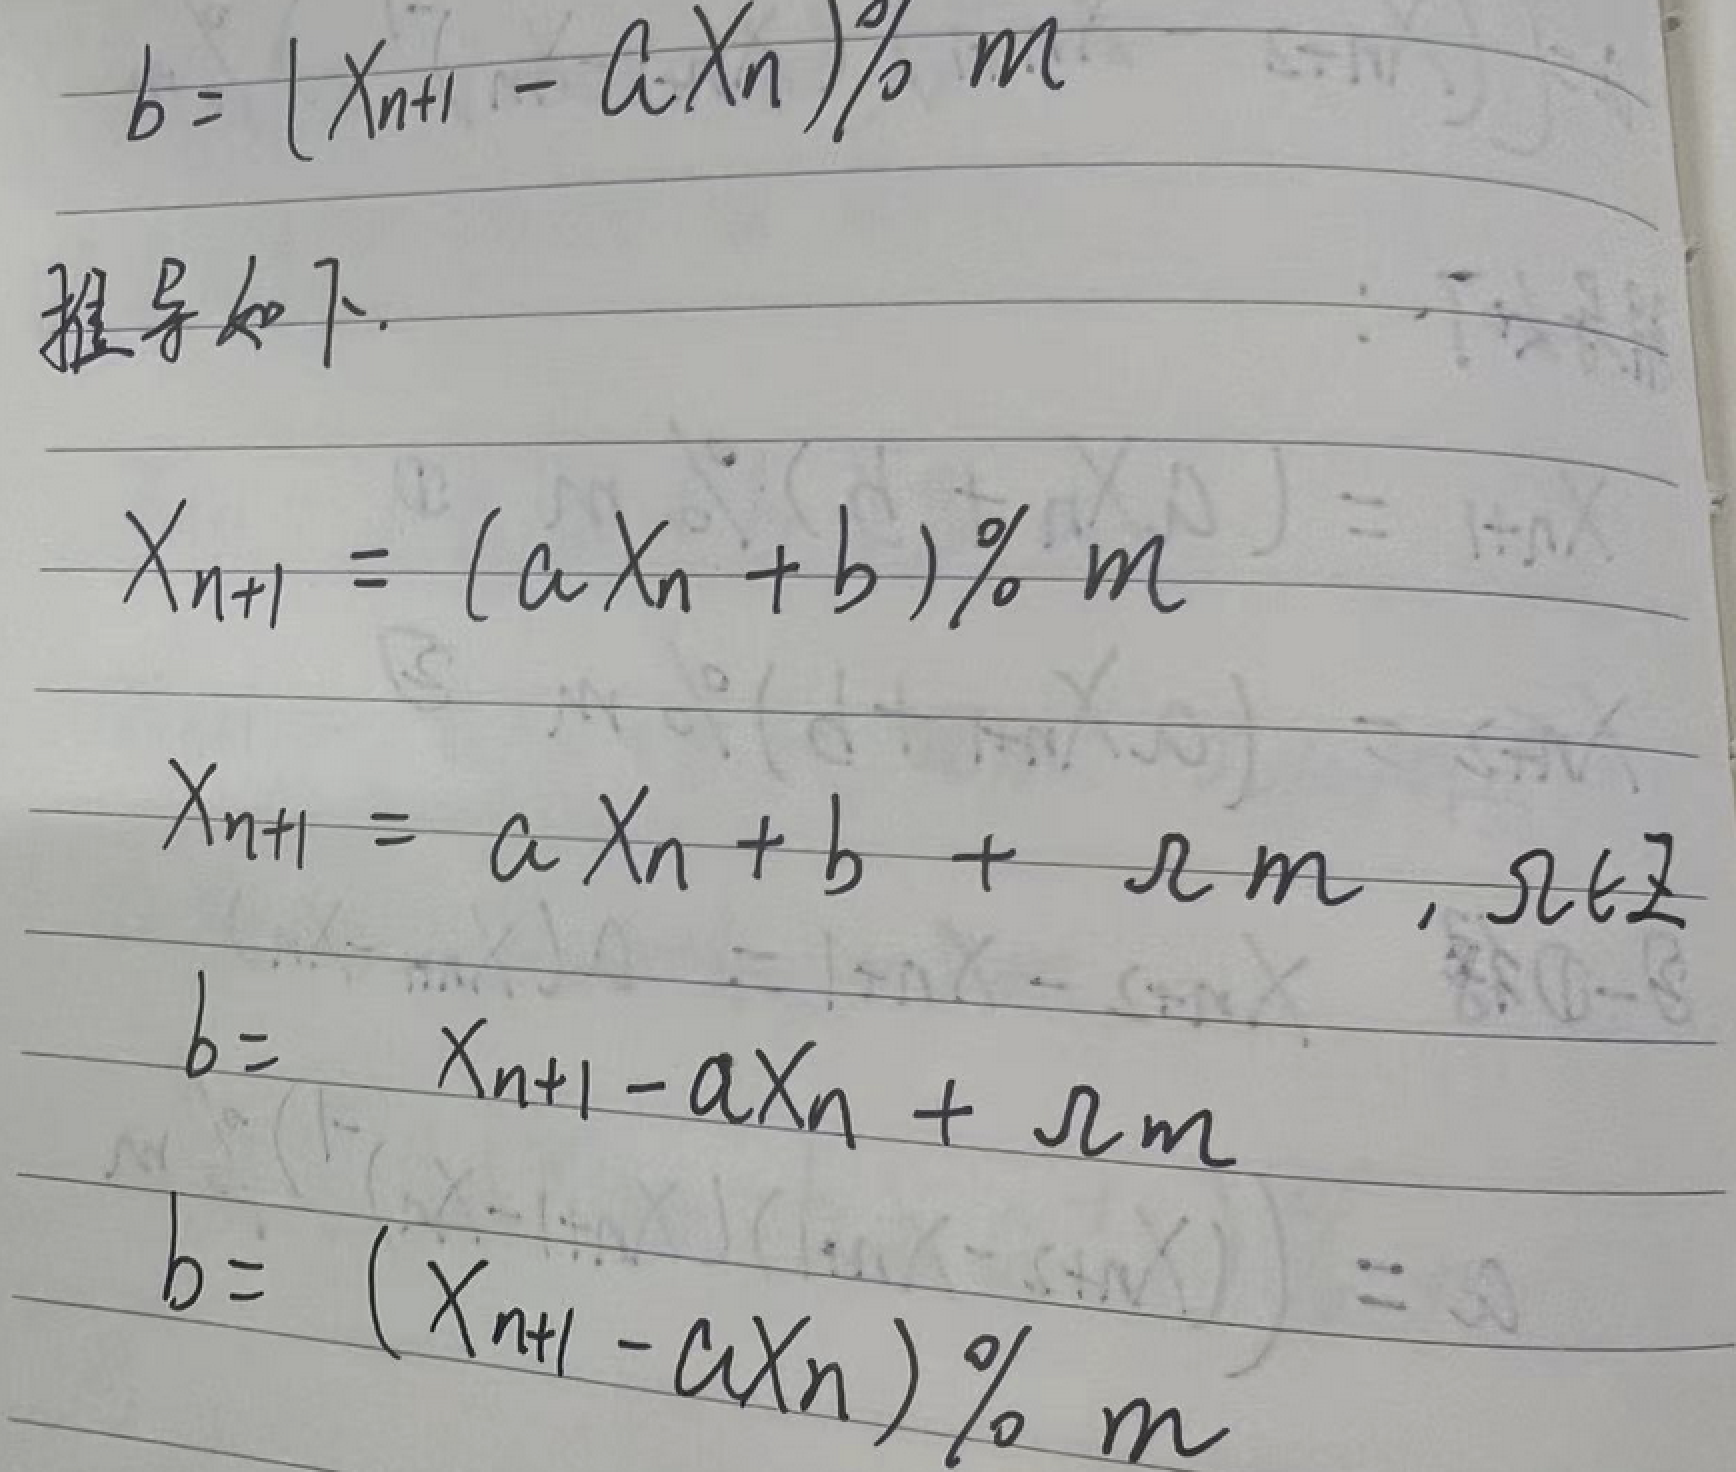 b = (Xn+1 - aXn)% m
推导如下.
Xn+1 = (aXn + b)% m
Xn+1 = aXn + b + Ωm, Ω∈Z
b = Xn+1 - aXn + Ωm
b = (Xn+1 - aXn)% m